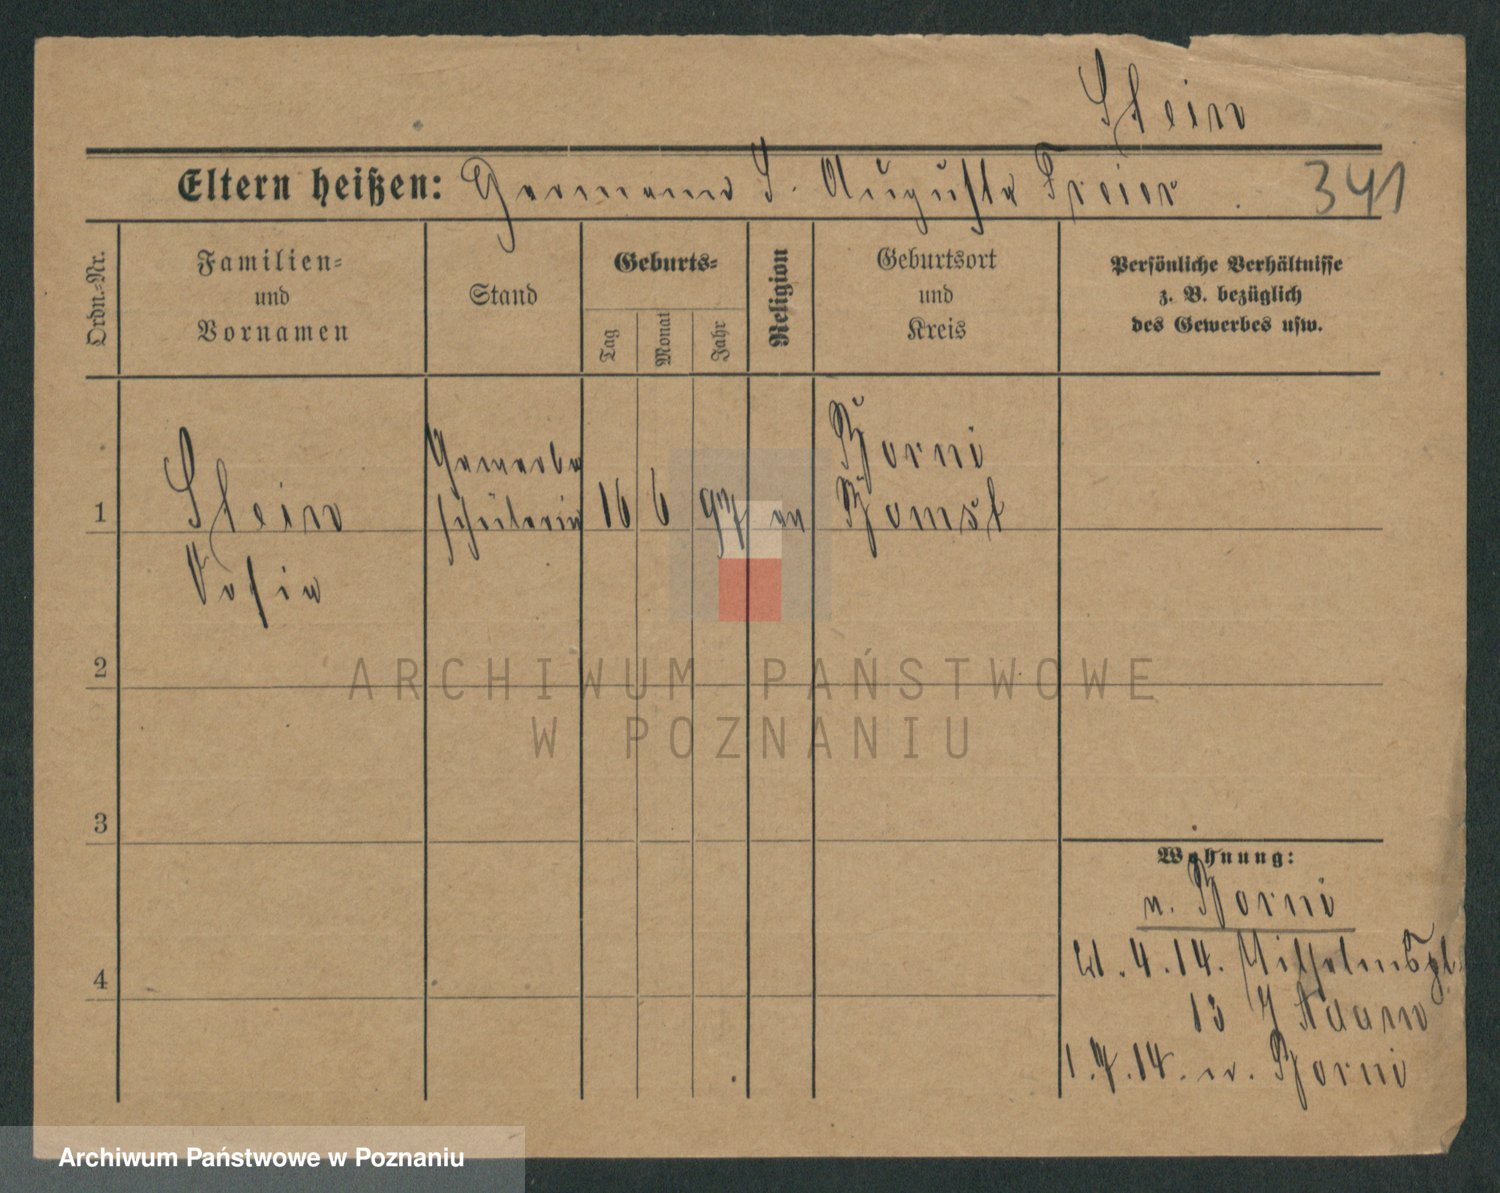 Stein
Eltern heißen: Hermann S. Auguste Freier 341
Ordn.-Nr.
Familien-
und
Vornamen
Stand
Geburts-
Tag
Monat
Jahr
Religion
Geburtsort
und
Kreis
Persönliche Verhältnisse
z. B. bezüglich
des Gewerbes usw.
1
Stein
Gewerbe
schülerin
16 6 97 ev
Borni
Bomst
2
3
4
Wohnung:
n. Borni
4.14. Wilhelmspl.
13
1.7.14. n. Borni
ARCHIWUM PAŃSTWOWE
W POZNANIU
Archiwum Państwowe w Poznaniu